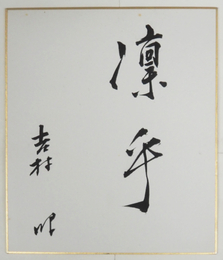 凛乎
吉村 昭